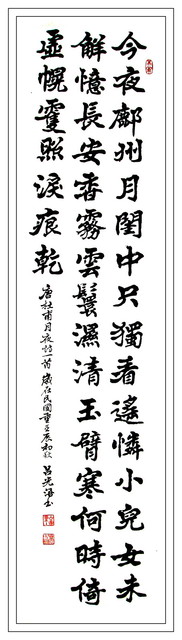 今夜鄜州月閨中只獨看遙憐小兒女未
解憶長安香霧雲鬟濕清玉臂寒何時倚
虛幌雙照淚痕乾
唐杜甫月夜詩一首 歲在民國壬辰初秋 呂光書